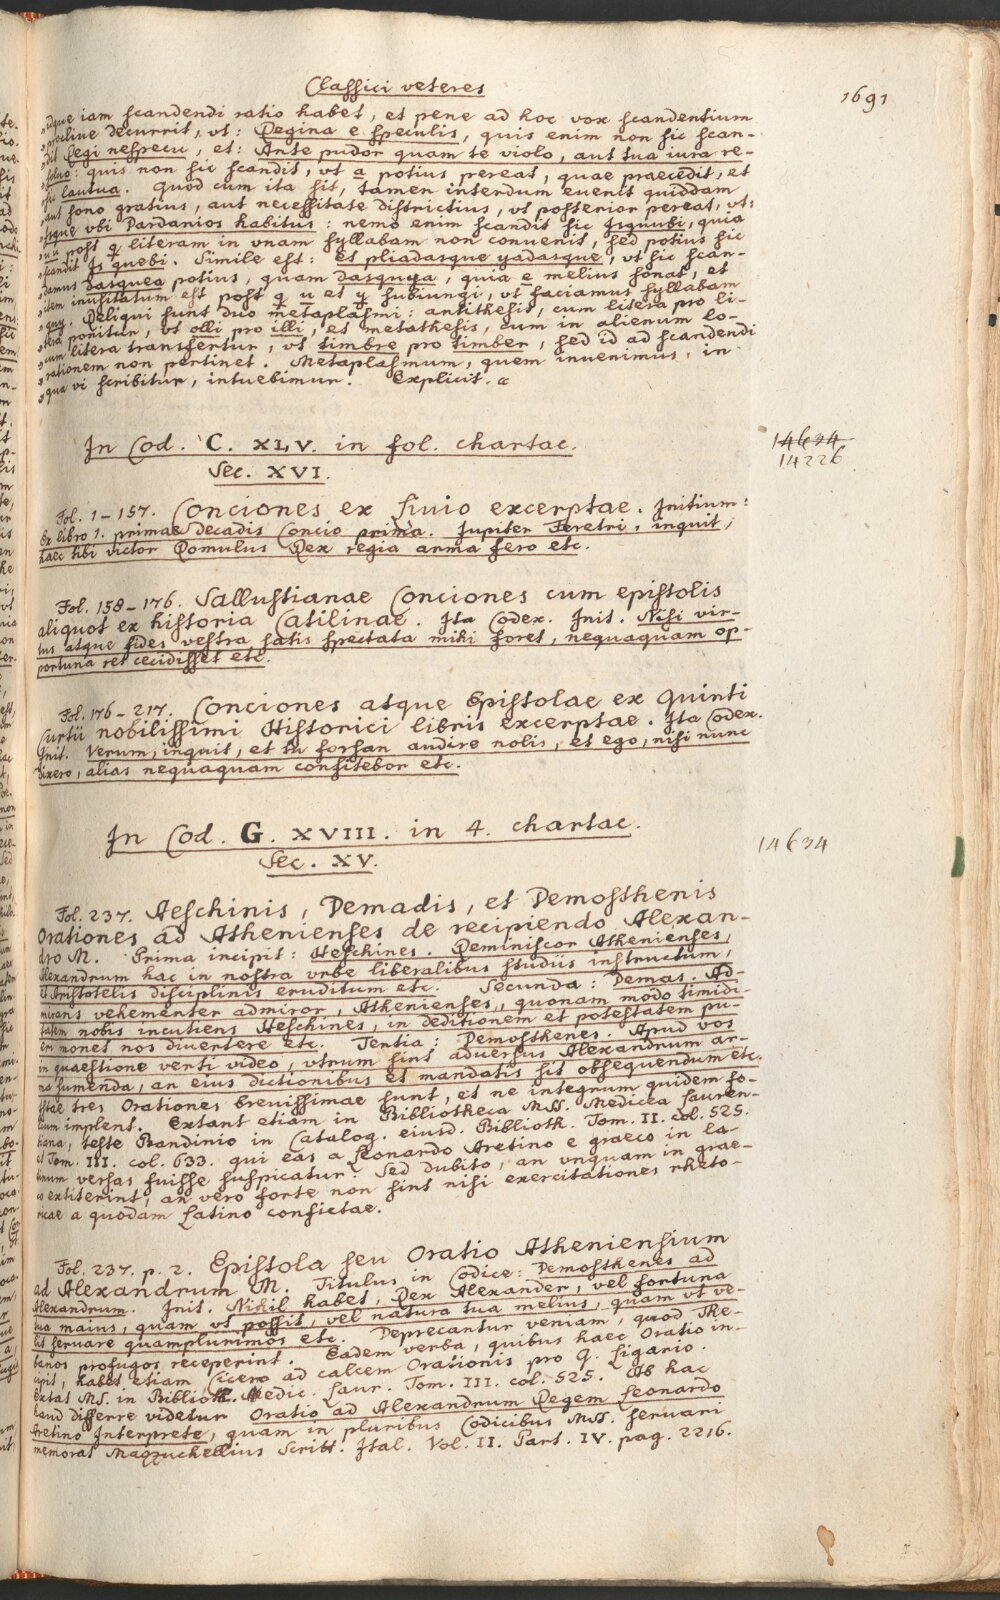 Classici veteres
1691
„dque iam scandendi ratio habet, et pene ad hoc vox scandentium
„procliue decurrit, vt: Regina e speculis, quis enim non sic scan-
„dit Regi nespecu, et: Ante pudor quam te violo, aut tua iura re-
„soluo: quis non sic scandit, vt a potius pereat, quae praecedit, et
„sic lautua. Quod cum ita sit, tamen interdum euenit quiddam
„aut sono gratius, aut necessitate districtius, vt posterior pereat, vt:
„Isque vbi Dardanios habitus: nemo enim scandit sic Isquubi, quia
„uu post q literam in vnam syllabam non conuenit, sed potius sic
„scandit Is quebi. Simile est: et pliadasque yadasque, vt sic scan-
„damus dasquea potius, quam dasquya, quia e melius sonat, et
„item inusitatum est post q u et y subiungi, vt faciamus syllabam
„quy. Reliqui sunt duo metaplasmi: antithesis, cum litera pro li-
„tera ponitur, vt olli pro illi, et metathesis, cum in alienum lo-
„cum litera transfertur, vt timbre pro timber, sed id ad scandendi
„rationem non pertinet. Metaplasmum, quem inuenimus, in
„qua vi scribitur, intuebimur. Explicit. „
In Cod. C. XLV. in fol. chartac.
14634
14226
Sec. XVI.
Fol. 1–157. Conciones ex Liuio excerptae. Initium:
Ex libro 1. primae Decadis Concio prima. Jupiter Feretri, inquit,
haec tibi victor Romulus Rex regia arma fero etc.
Fol. 158–176. Sallustianae Conciones cum epistolis
aliquot ex historia Catilinae. Ita Codex. Init. Nisi vir-
tus atque fides vestra satis spectata mihi foret, nequaquam op-
portuna res cecidisset etc.
Fol. 176–217. Conciones atque Epistolae ex Quinti
Curtii nobilissimi Historici libris excerptae. Ita Codex.
Init. Verum, inquit, et tu forsan audire nolis, et ego, nisi nunc
dixero, alias nequaquam confitebor etc.
In Cod. G. XVIII. in 4. chartac.
14634
Sec. XV.
Fol. 237. Aeschinis, Demadis, et Demosthenis
Orationes ad Athenienses de recipiendo Alexan-
dro M. Prima incipit: Aeschines. Reminiscor Athenienses,
Alexandrum hac in nostra vrbe liberalibus studiis instructum,
et Aristotelis disciplinis eruditum etc. Secunda: Demas. Ad-
mirans vehementer admiror, Athenienses, quonam modo timidi-
tatem nobis incutiens Aeschines, in deditionem et potestatem pu-
eri monet nos diuertere etc. Tertia: Demosthenes. Apud vos
in quaestione verti video, vtrum sint aduersus Alexandrum ar-
ma sumenda, an eius dictionibus et mandatis sit obsequendum etc.
Istae tres Orationes breuissimae sunt, et ne integrum quidem fo-
lium implent. Extant etiam in Bibliotheca MSS. Medicea Lauren-
tiana, teste Bandinio in Catalog. eiusd. Biblioth. Tom. II. col. 525.
et Tom. III. col. 633. qui eas a Leonardo Aretino e graeco in la-
tinum versas fuisse suspicatur. Sed dubito, an vnquam in grae-
co extiterint, an vero forte non sint nisi exercitationes rheto-
ricae a quodam Latino confictae.
Fol. 237. p. 2. Epistola seu Oratio Atheniensium
ad Alexandrum M. Titulus in Codice: Demosthenes ad
Alexandrum. Init. Nihil habet, Rex Alexander, vel fortuna
tua maius, quam vt possit, vel natura tua melius, quam vt ve-
lit seruare quamplurimos etc. Deprecantur veniam, quod The-
banos profugos receperint. Eadem verba, quibus haec Oratio in-
cipit, habet etiam Cicero ad calcem Orationis pro Q. Ligario.
Extat MS. in Biblioth. Medic. Laur. Tom. III. col. 525. Ab hac
haud differre videtur Oratio ad Alexandrum Regem Leonardo
Aretino Interprete, quam in pluribus Codicibus MSS. seruari
memorat Mazzuchellius Scritt. Ital. Vol. II. Part. IV. pag. 2216.